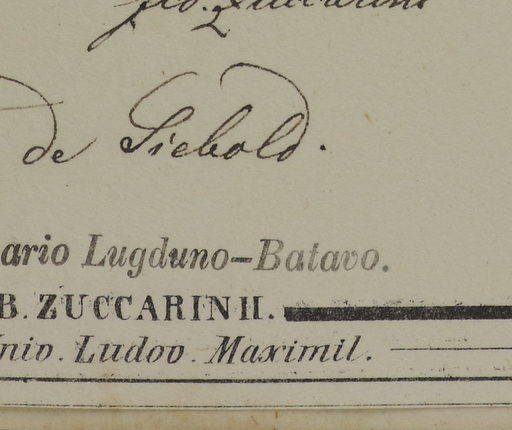 Zuccarini
de Siebold.
ario Lugduno-Batavo.
B. ZUCCARINII.
niv. Ludov. Maximil.